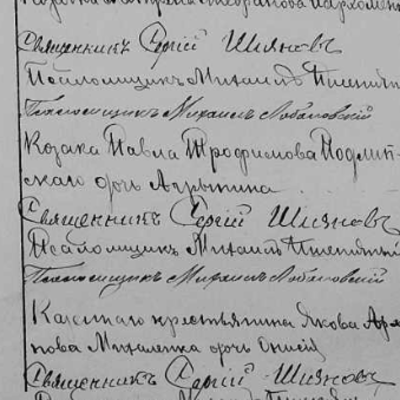 Священникъ Сергій Шияновъ
Псаломщикъ Михаилъ
Псаломщикъ Михаилъ Лобановскій
Козака Павла Трофимова Подлип-
скаго дочь Агрипина
Священникъ Сергій Шияновъ
Псаломщик Михаилъ
Псаломщикъ Михаилъ Лобановскій
Казеннаго крестьянина Якова
пова Михаленка дочь Онисія
Священникъ Сергій Шияновъ